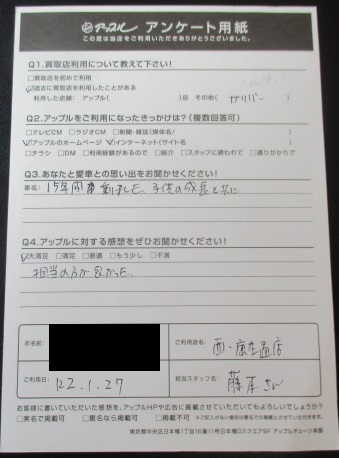 アップル アンケート用紙
この度は当店をご利用いただきありがとうございました。
Q1.買取店利用について教えて下さい!
□買取店を初めて利用
☑過去に買取店を利用したことがある
利用した店舗: アップル( )店 その他( ガリバー )
Q2.アップルをご利用になったきっかけは?(複数回答可)
□テレビCM □ラジオCM □新聞・雑誌(媒体名 )
☑アップルのホームページ ☑インターネット(サイト名 )
□チラシ □DM □利用経験があるので □紹介 □スタッフに誘われて □通りがかりで
Q3.あなたと愛車との思い出をお聞かせください!
車名: 15年間 しました、子供の成長と共に
Q4.アップルに対する感想をぜひお聞かせください!
☑大満足 □満足 □普通 □もう少し □不満
担当の方が良かった。
お名前
ご利用店名: 西・康生通店
ご利用日: R2.1.27
担当スタッフ名: 藤本さん
お客様に書いていただいた感想を、アップルHPや広告に掲載させていただいてもよろしいでしょうか?
□実名で掲載可 □匿名なら掲載可 □掲載不可 ※ご記入がない場合は匿名での掲載とさせていただきます。
東京都中央区日本橋1丁目16番11号日本橋Dスクエア5F アップルチェーン本部